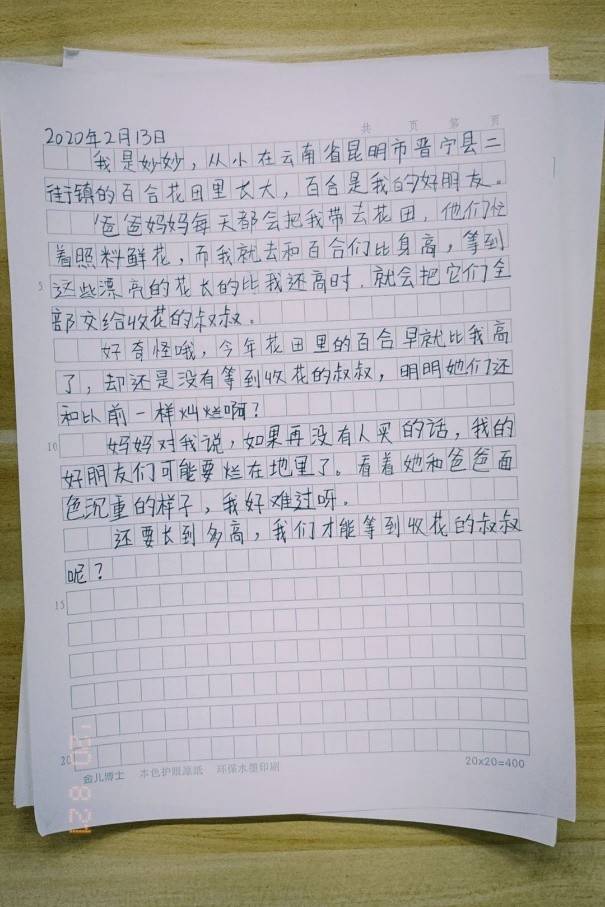 共 页 第 页
2020年2月13日
我是妙妙，从小在云南省昆明市晋宁县二
街镇的百合花田里长大，百合是我的好朋友。
爸爸妈妈每天都会把我带去花田，他们忙
着照料鲜花，而我就去和百合们比身高，等到
5 这些漂亮的花长的比我还高时，就会把它们全
部交给收花的叔叔。
好奇怪哦，今年花田里的百合早就比我高
了，却还是没有等到收花的叔叔，明明她们还
和以前一样灿烂啊？
10 妈妈对我说，如果再没有人买的话，我的
好朋友们可能要烂在地里了。看着她和爸爸面
色沉重的样子，我好难过呀。
还要长到多高，我们才能等到收花的叔叔
呢？
15
20
金儿博士 本色护眼原纸 环保水墨印刷 20×20=400
'20 8 21